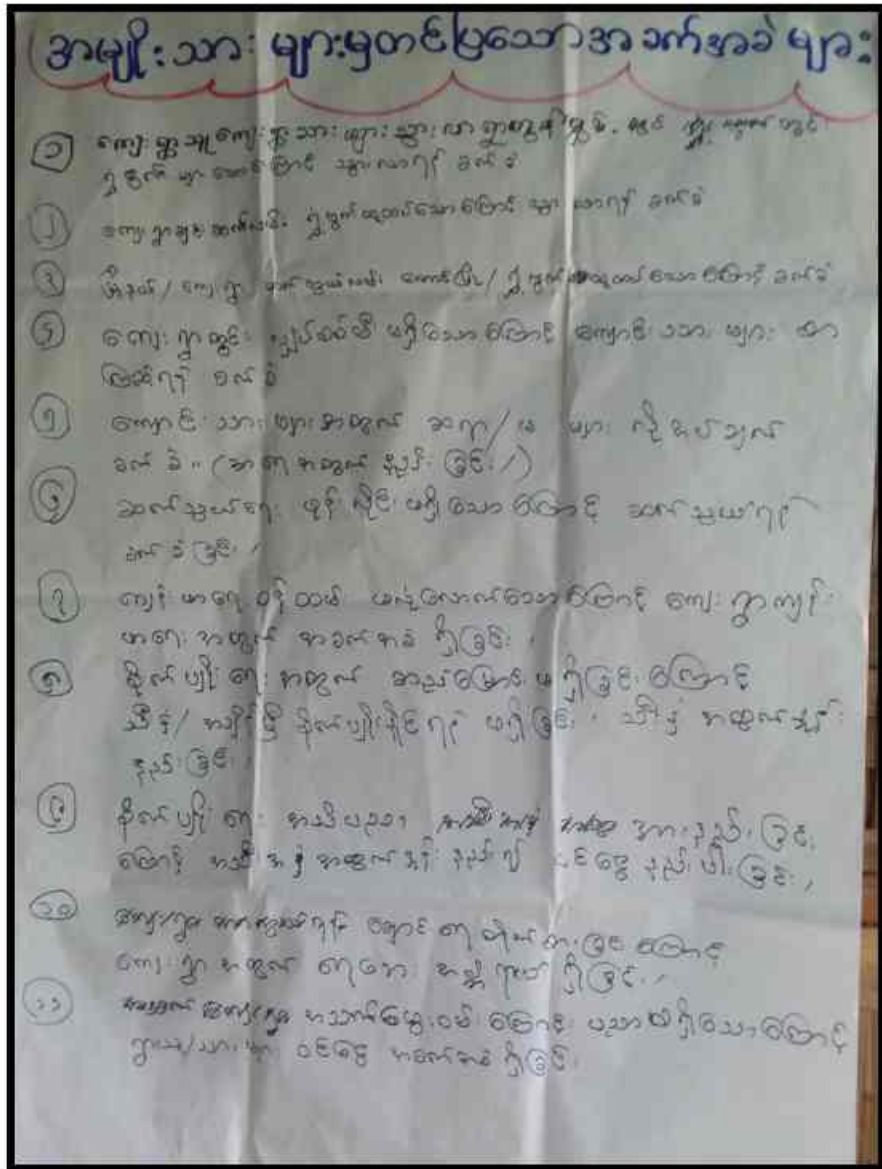 အမျိုးသား များမှတင်ပြသောအခက်အခဲ များ
၁ ကျေးရွာသူကျေးရွာသားများသွားလာ
ရွှံ့ဗွက် များသောကြောင့် သွားလာရန် ခက်ခဲ
၂ ကျေးရွာချင်းဆက်လမ်း ရွှံ့ဗွက်ထူထပ်သောကြောင့် သွားလာရန် ခက်ခဲ
၃ မြို့နယ်/ကျေးရွာ ဆက်သွယ်လမ်း ရွှံ့ဗွက်ထူထပ်သောကြောင့် ခက်ခဲ
၄ ကျေးရွာတွင်း လျှပ်စစ်မီး မရှိသောကြောင့် ကျောင်းသား များ စာ
ကြည့်ရန် ခက်ခဲ
၅ ကျောင်းသားများအတွက် ဆရာ/မ များ လိုအပ်ချက်
ခက်ခဲ။ (အရေအတွက် နည်းခြင်း/)
၆ ဆက်သွယ်ရေး ဖုန်းလိုင်း မရှိသောကြောင့် ဆက်သွယ်ရန်
ခက်ခဲခြင်း/
၇ ကျန်းမာရေး ဝန်ထမ်း မလုံလောက်သောကြောင့် ကျေးရွာကျန်း
မာရေးအတွက် အခက်အခဲ ရှိခြင်း၊
၈ စိုက်ပျိုးရေးအတွက် ဆည်မြောင်း မရှိခြင်းကြောင့်
သီးနှံ/ စိုက်ပျိုးနိုင်ရန် မရှိခြင်း၊ သီးနှံ အထွက်နှုန်း
နည်းခြင်း၊
၉ စိုက်ပျိုးရေး အသိပညာ အားနည်းခြင်း
ကြောင့် အသီးအနှံအထွက်နှုန်း နည်း၍ ဝင်ငွေ နည်းပါးခြင်း/
၁၀ ချောင်းရေတိုက်စားခြင်းကြောင့်
ကျေးရွာအတွက် ရေဘေး အန္တရာယ် ရှိခြင်း/
၁၁ အသက်မွေးဝမ်းကြောင်း ပညာမရှိသောကြောင့်
ရွာသူ/သားများ ဝင်ငွေ အခက်အခဲ ရှိခြင်း